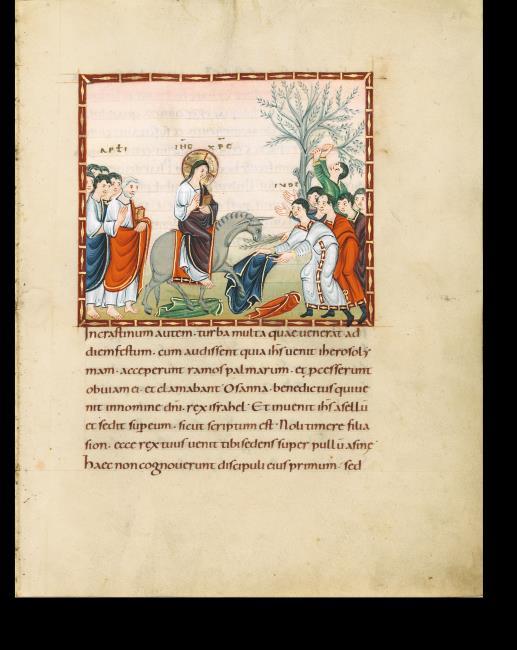 APTI
IHC XPC
IVDE
Incrastinum autem · turba multa quae venerat ad
diemfestum · cum audissent quia ihs uenit iherosolẏ
mam · acceperunt ramos palmarum · et pcesserunt
obuiam ei · et clamabant Osanna · benedictus quiue
nit innomine dnī · rex israhel · Et inuenit ihs asellū
et sedit supeum · sicut scriptum est · Noli timere filia
sion · ecce rex tuus uenit tibi sedens super pullū asine
haec non cognouerunt discipuli eius primum · sed